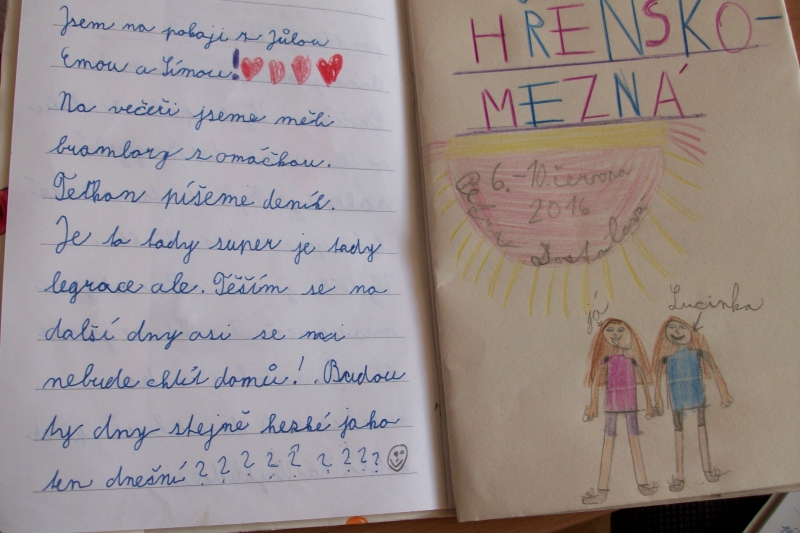 Jsem na pokoji s Júlou
Emou a Símou!
Na večeři jsme měli
brambory s omáčkou.
Teťkon píšeme deník.
Je to tady super je tady
legrace ale. Těším se na
další dny asi se mi
nebude chtít domů!. Budou
ty dny stejně hezké jako
ten dnešní ? ? ? ? ? ? ? ? ?
HŘENSKO-
MEZNÁ
6.-10. června
2016
Dostálová
já
Lucinka